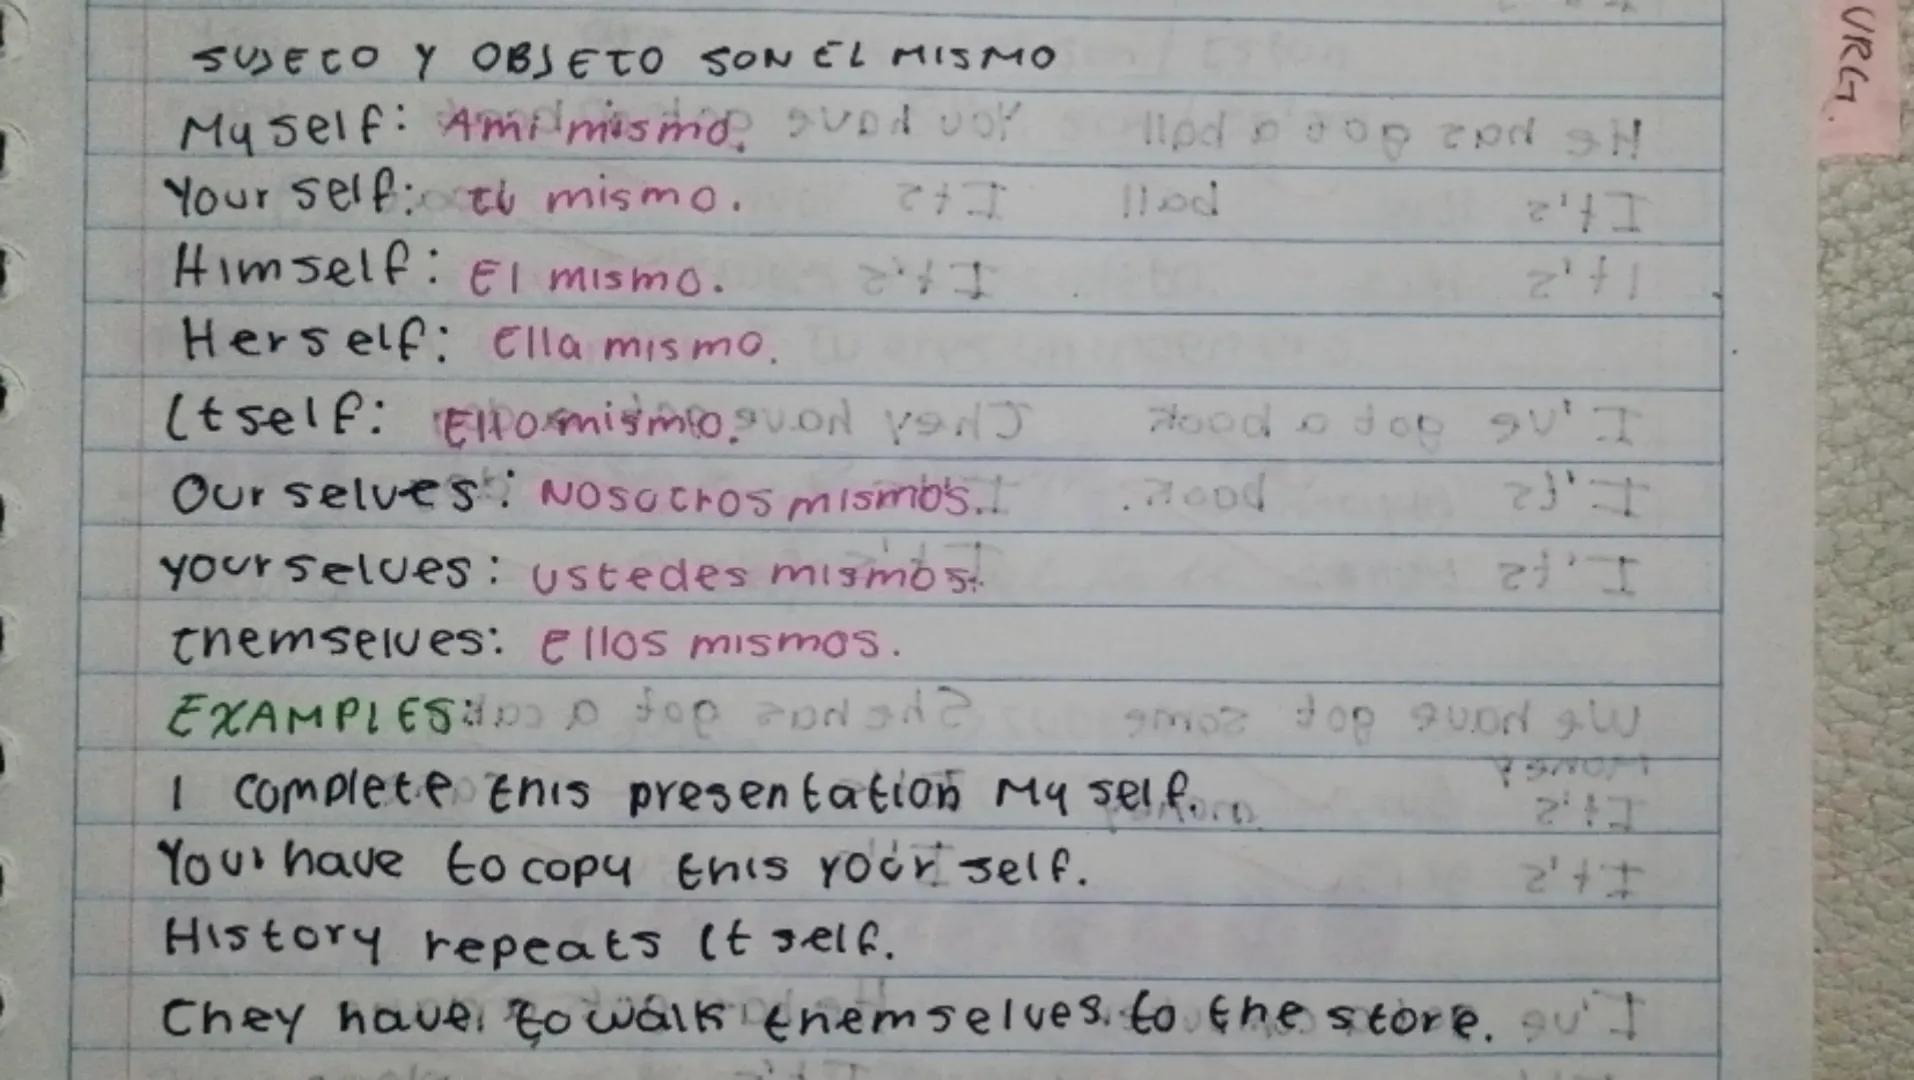 SUJETO Y OBJETO SON EL MISMO
Myself: A mi mismo.
Yourself: tú mismo.
Himself: El mismo.
Herself: Ella mismo.
Itself: Ello mismo.
Ourselves: Nosotros mismos.
yourselves: ustedes mismos.
themselves: ellos mismos.
EXAMPLES:
I complete this presentation Myself.
You have to copy this Yourself.
History repeats Itself.
They have to walk themselves to the store.
URG.